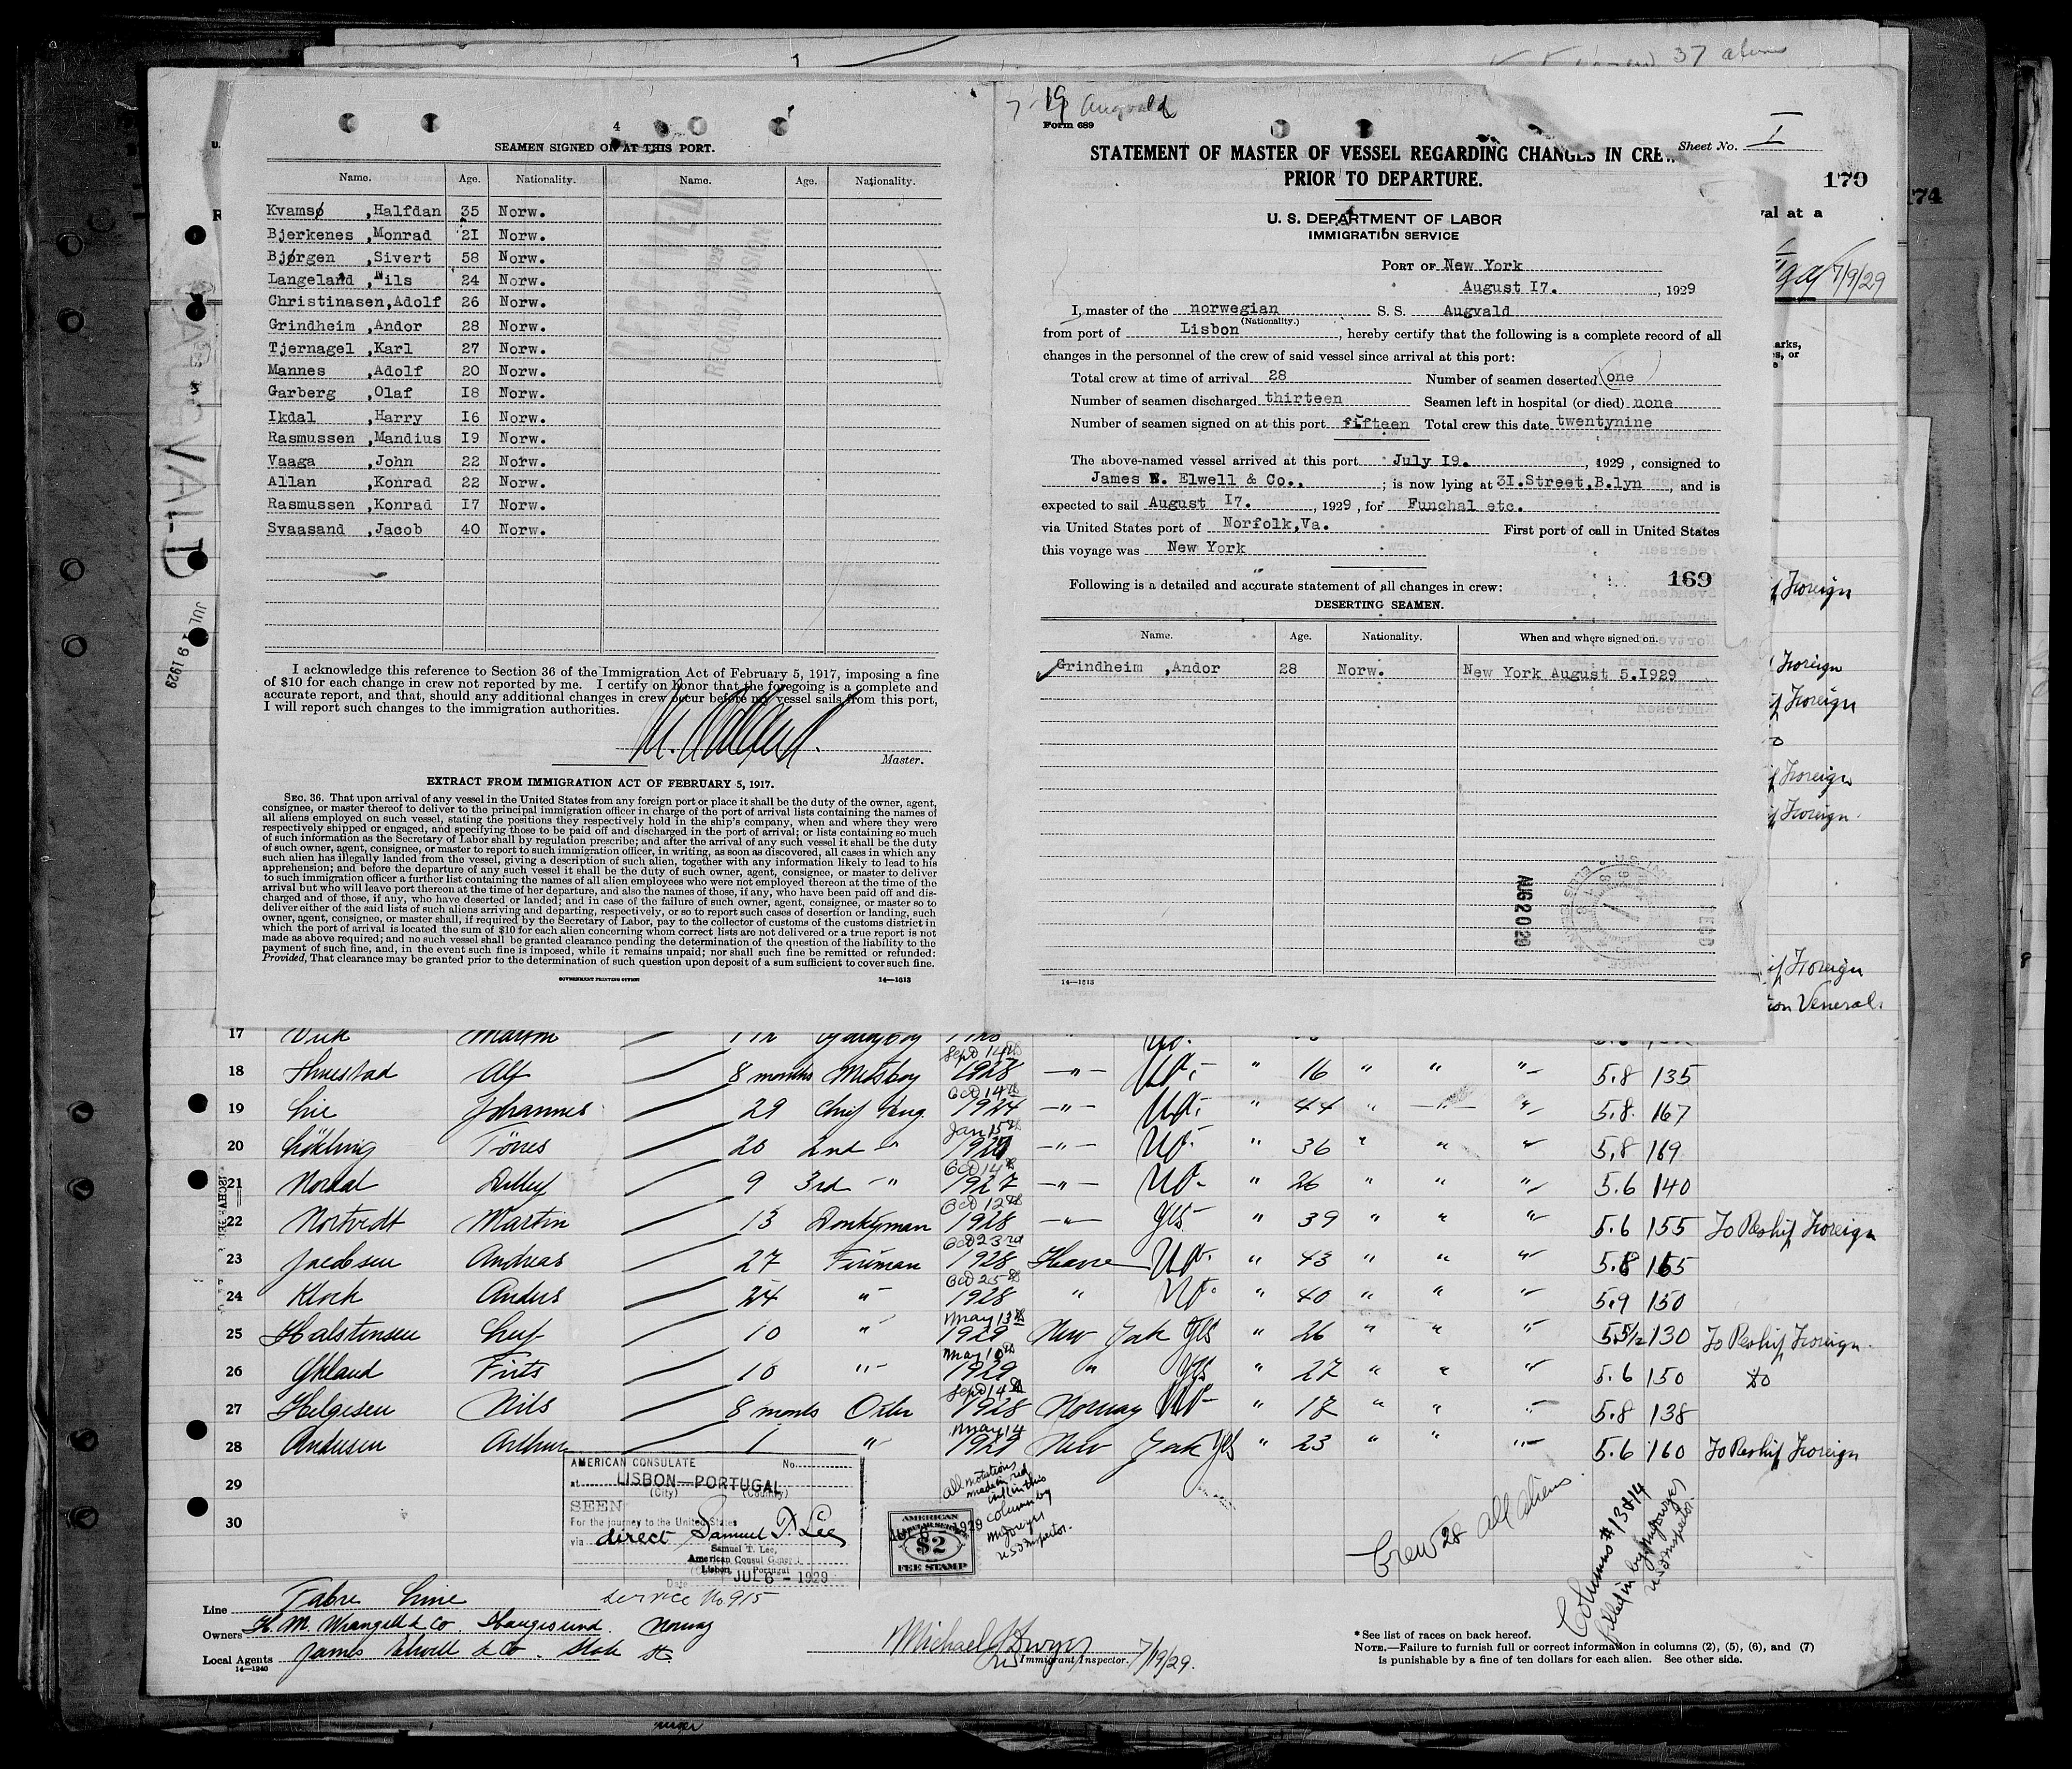 37
4
SEAMEN SIGNED ON AT THIS PORT.
Name. Age. Nationality. Name. Age. Nationality.
Kvamsø ,Halfdan 35 Norw.
Bjerkenes ,Monrad 21 Norw.
Bjørgen ,Sivert 58 Norw.
Langeland ,Nils 24 Norw.
Christinasen,Adolf 26 Norw.
Grindheim ,Andor 28 Norw.
Tjernagel ,Karl 27 Norw.
Mannes ,Adolf 20 Norw.
Garberg ,Olaf I8 Norw.
Ikdal ,Harry I6 Norw.
Rasmussen ,Mandius I9 Norw.
Vaaga ,John 22 Norw.
Allan ,Konrad 22 Norw.
Rasmussen ,Konrad I7 Norw.
Svaasand ,Jacob 40 Norw.
RECEIVED
RECORD DIVISION
I acknowledge this reference to Section 36 of the Immigration Act of February 5, 1917, imposing a fine
of $10 for each change in crew not reported by me. I certify on honor that the foregoing is a complete and
accurate report, and that, should any additional changes in crew occur before my vessel sails from this port,
I will report such changes to the immigration authorities.
Master.
EXTRACT FROM IMMIGRATION ACT OF FEBRUARY 5, 1917.
SEC. 36. That upon arrival of any vessel in the United States from any foreign port or place it shall be the duty of the owner, agent,
consignee, or master thereof to deliver to the principal immigration officer in charge of the port of arrival lists containing the names of
all aliens employed on such vessel, stating the positions they respectively hold in the ship's company, when and where they were
respectively shipped or engaged, and specifying those to be paid off and discharged in the port of arrival; or lists containing so much
of such information as the Secretary of Labor shall by regulation prescribe; and after the arrival of any such vessel it shall be the duty
of such owner, agent, consignee, or master to report to such immigration officer, in writing, as soon as discovered, all cases in which any
such alien has illegally landed from the vessel, giving a description of such alien, together with any information likely to lead to his
apprehension; and before the departure of any such vessel it shall be the duty of such owner, agent, consignee, or master to deliver
to such immigration officer a further list containing the names of all alien employees who were not employed thereon at the time of the
arrival but who will leave port thereon at the time of her departure, and also the names of those, if any, who have been paid off and dis-
charged and of those, if any, who have deserted or landed; and in case of the failure of such owner, agent, consignee, or master so to
deliver either of the said lists of such aliens arriving and departing, respectively, or so to report such cases of desertion or landing, such
owner, agent, consignee, or master shall, if required by the Secretary of Labor, pay to the collector of customs of the customs district in
which the port of arrival is located the sum of $10 for each alien concerning whom correct lists are not delivered or a true report is not
made as above required; and no such vessel shall be granted clearance pending the determination of the question of the liability to the
payment of such fine, and, in the event such fine is imposed, while it remains unpaid; nor shall such fine be remitted or refunded:
Provided, That clearance may be granted prior to the determination of such question upon deposit of a sum sufficient to cover such fine.
GOVERNMENT PRINTING OFFICE 14—1613
19 Augvald
Form 689
Sheet No. I
STATEMENT OF MASTER OF VESSEL REGARDING CHANGES IN CREW
PRIOR TO DEPARTURE.
U. S. DEPARTMENT OF LABOR
IMMIGRATION SERVICE
PORT OF New York
August I7. , 1929
I, master of the norwegian S. S. Augvald
(Nationality.)
from port of Lisbon , hereby certify that the following is a complete record of all
changes in the personnel of the crew of said vessel since arrival at this port:
Total crew at time of arrival 28 Number of seamen deserted one
Number of seamen discharged thirteen Seamen left in hospital (or died) none
Number of seamen signed on at this port fifteen Total crew this date twentynine
The above-named vessel arrived at this port July I9. , 1929 , consigned to
James W. Elwell & Co., ; is now lying at 3I.Street,B.lyn , and is
expected to sail August I7. , 1929 , for Funchal etc.
via United States port of Norfolk,Va. First port of call in United States
this voyage was New York
169
Following is a detailed and accurate statement of all changes in crew:
DESERTING SEAMEN.
Name. Age. Nationality. When and where signed on.
Grindheim ,Andor 28 Norw. New York August 5.I929
AUG 20 29
14—1613
170
174
val at a
7/9/29
Foreign
Foreign
Foreign
Foreign
Foreign
if Foreign
AUGVALD
JUL 19 1929
17 Martin
18 Alf 8 months Messboy Sept 14th 1928 —"— No. " 16 " " " 5.8 135
19 Lie Johannes 29 Chief Eng Oct 14th 1924 —"— No. " 44 " —"— " 5.8. 167
20 Tönes 20 2nd " Jan 15th —"— No. " 36 " " " 5,8 169
21 Nordal 9 3rd " Oct 14th 1927 —"— No. " 26 " " " 5.6 140
22 Nortvedt Martin 13 Donkeyman Oct 12th 1928 —"— Yes " 39 " " " 5.6 155 To Reship Foreign
23 Jacobsen Andreas 27 Fireman Oct 23rd 1928 Havre No. " 43 " " " 5.8 165
24 Klock Anders 24 " Oct 25th 1928 " No. " 40 " " " 5.9 150
25 Halstensen Leif 10 " May 13th 1929 New York Yes " 26 " " " 5.5½ 130 To Reship Foreign.
26 10 " May 10th 1929 " Yes " 27 " " " 5.6 150 do
27 Helgesen Nils 8 months Sept 14th 1928 Norway No " 18 " " " 5.8 138
28 Andersen Arthur 1 " May 14 1929 New York Yes " 23 " " " 5.6 160 To Reship Foreign
29
30
AMERICAN CONSULATE No.
at LISBON—PORTUGAL
(City) (Country)
SEEN
For the journey to the United States
via direct Samuel T. Lee
Samuel T. Lee,
American Consul General
Lisbon, Portugal
Date JUL 6 - 1929
service No 915
AMERICAN
$2
FEE STAMP
All notations
made in red
ink in this
column by
M Dwyer
US Inspector.
Crew 28 all aliens
Columns # 13 & 14
filled in by M Dwyer
US Inspector.
Line Fabre Line
Owners H. M. Wrangell & Co. Haugesund. Norway
Local Agents James Elwell & Co. State St.
14—1240
Michael J Dwyer 7/19/29.
Immigrant Inspector.
* See list of races on back hereof.
NOTE.—Failure to furnish full or correct information in columns (2), (5), (6), and (7)
is punishable by a fine of ten dollars for each alien. See other side.